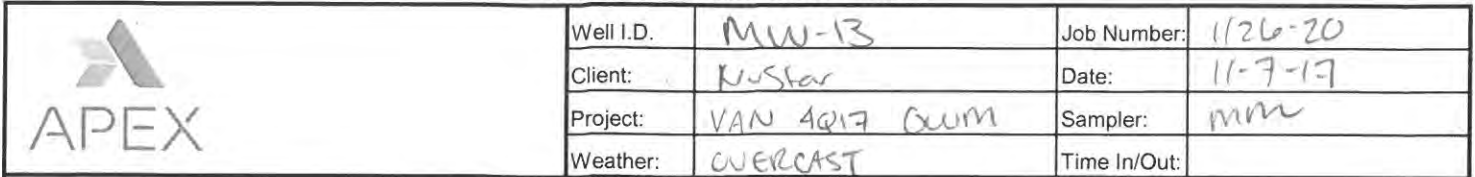 APEX
Well I.D. MW-13 Job Number: 1126-20
Client: NuStar Date: 11-7-17
Project: VAN 4Q17 GWM Sampler: MM
Weather: OVERCAST Time In/Out: